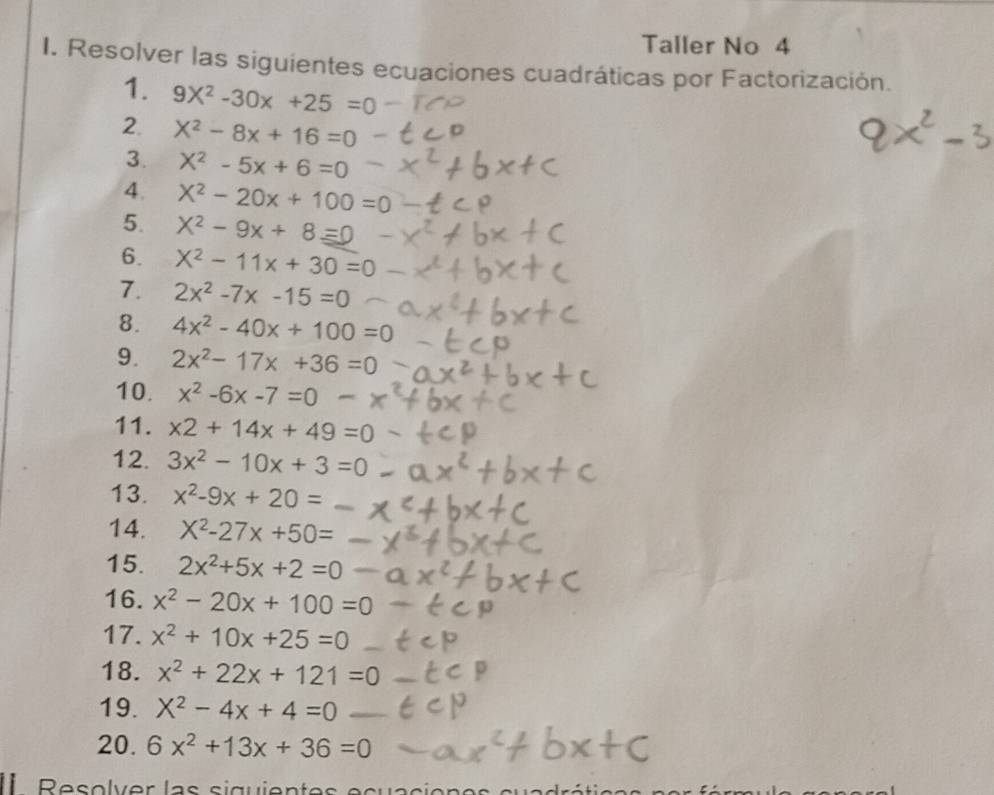 Taller No 4
I. Resolver las siguientes ecuaciones cuadráticas por Factorización.
1. 9X² -30x +25 =0 - TCP
2. X² - 8x + 16 =0 - tcp
9x² - 3
3. X² - 5x + 6 =0 - x² + bx + c
4. X² - 20x + 100 =0 - tcp
5. X² - 9x + 8 =0 - x² + bx + c
6. X² - 11x + 30 =0 - x² + bx + c
7. 2x² -7x -15 =0 - ax² + bx + c
8. 4x² - 40x + 100 =0 - tcp
9. 2x² - 17x +36 =0 - ax² + bx + c
10. x² -6x -7 =0 - x² + bx + c
11. x2 + 14x + 49 =0 - tcp
12. 3x² - 10x + 3 =0 - ax² + bx + c
13. x²-9x + 20 = - x² + bx + c
14. X²-27x +50= - x² + bx + c
15. 2x²+5x +2 =0 - ax² + bx + c
16. x² - 20x + 100 =0 - tcp
17. x² + 10x +25 =0 - tcp
18. x² + 22x + 121 =0 - tcp
19. X² - 4x + 4 =0 - tcp
20. 6 x² +13x + 36 =0 - ax² + bx + c
II. Resolver las siguientes ecuaciones cuadráticas por fórmula general